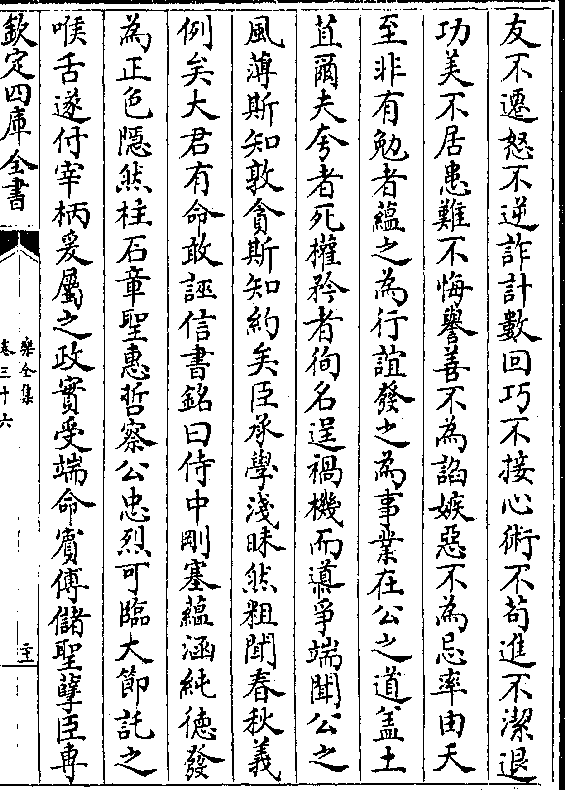 友不遷怒不逆詐計數回巧不接心術不茍進不潔退
功美不居患難不悔譽善不為諂嫉惡不為忌率由天
至非有勉者藴之為行誼發之為事業在公之道盖土
苴爾夫夸者死權矜者徇名逞禍機而導爭端聞公之
風薄斯知敦貪斯知約矣臣承學淺昧然粗聞春秋義
例矣大君有命敢誣信書銘曰侍中剛塞藴涵純徳發
為正色隱然柱石章聖惠哲察公忠烈可臨大節託之
喉舌遂付宰柄爰屬之政實受端命賓傅儲聖孽臣専
欽定四庫全書
樂全集
卷三十六